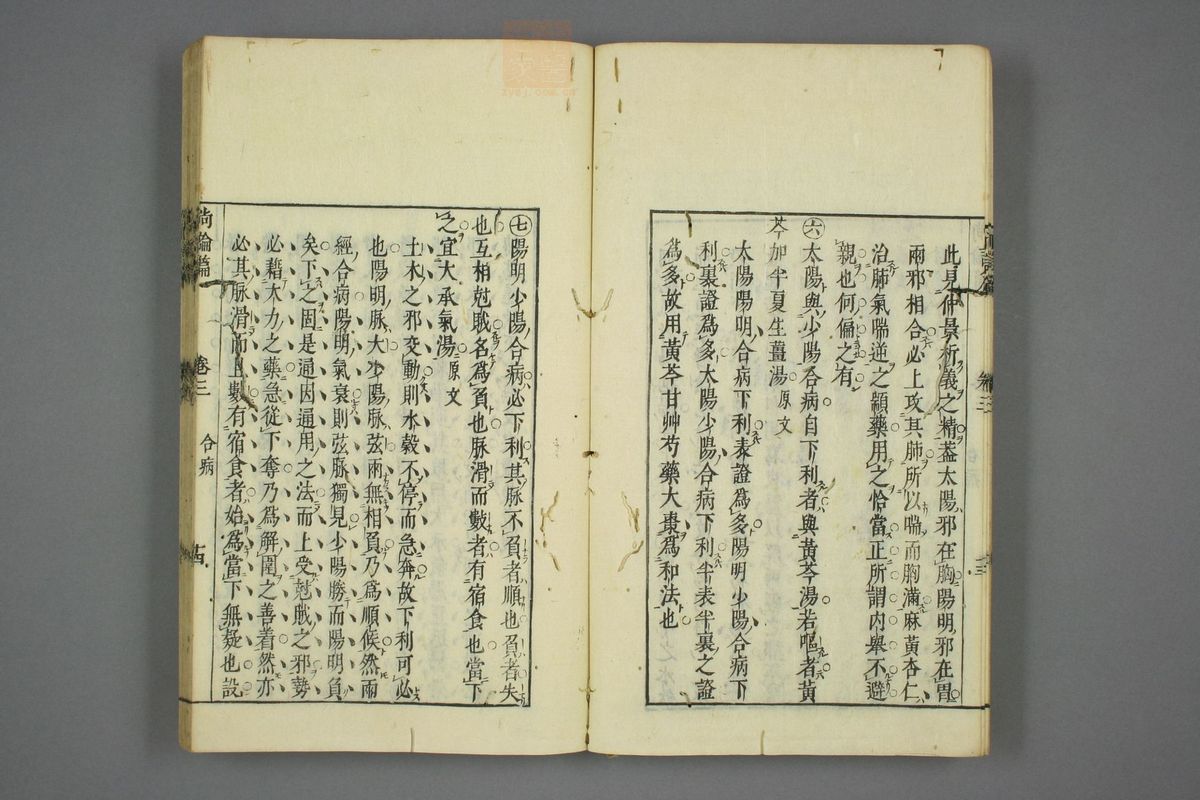 此見仲景析義之精蓋太陽邪在胸陽明邪在胃
兩邪相合必上攻其肺所以喘而胸滿麻黃杏仁
治肺氣喘逆之顓藥用之恰當正所謂內舉不避
親也何偏之有
㊅太陽與少陽合病自下利者與黃芩湯若嘔者黃
芩加半夏生薑湯 原文
太陽陽明合病下利表證爲多陽明少陽合病下
利裏證爲多太陽少陽合病下利半表半裏之證
爲多故用黃芩甘艸芍藥大棗爲和法也
㊆陽明少陽合病必下利其脉不負者順也負者失
也互相尅賊名爲負也脉滑而數者有宿食也當下
之宜大承氣湯 原文
土木之邪交動則水穀不停而急奔故下利可必
也陽明脉大少陽脉弦兩無相負乃爲順候然兩
經合病陽明氣衰則弦脉獨見少陽勝而陽明負
矣下之固是通因通用之法而上受尅賊之邪勢
必藉大力之藥急從下奪乃爲解圍之善着然亦
必其脉滑而且數有宿食者始爲當下無疑也設
尚論篇 卷三 合病 十四
zydj.com.cn